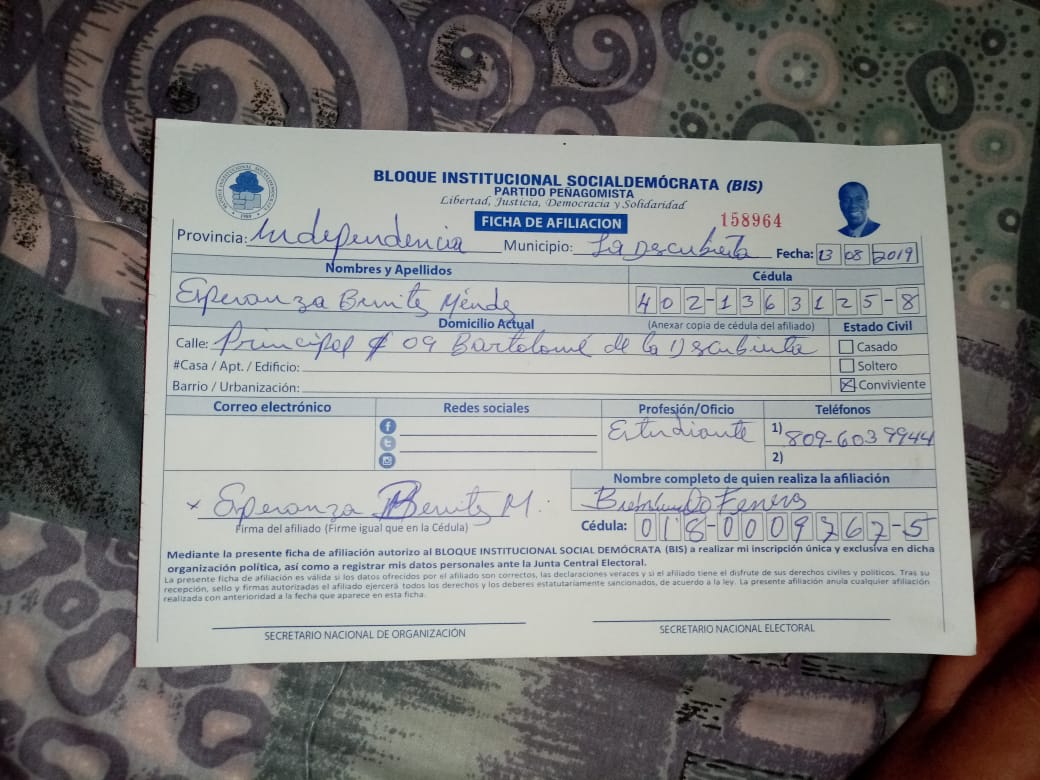 BLOQUE INSTITUCIONAL SOCIALDEMÓCRATA (BIS)
PARTIDO PEÑAGOMISTA
Libertad, Justicia, Democracia y Solidaridad
FICHA DE AFILIACION 158964
Provincia: Independencia Municipio: La Descubierta Fecha: 13 08 2019
Nombres y Apellidos Cédula
Esperanza Benitez Méndez 402-1363125-8
Domicilio Actual (Anexar copia de cédula del afiliado) Estado Civil
Calle: Principal # 09 Bartolomé de la Descubierta Casado
#Casa / Apt. / Edificio: Soltero
Barrio / Urbanización: Conviviente
Correo electrónico Redes sociales Profesión/Oficio Teléfonos
Estudiante 1) 809-603 9944
2)
Nombre completo de quien realiza la afiliación
x Esperanza Benitez M.
Firma del afiliado (Firme igual que en la Cédula) Cédula: 018-0009767-5
Mediante la presente ficha de afiliación autorizo al BLOQUE INSTITUCIONAL SOCIAL DEMÓCRATA (BIS) a realizar mi inscripción única y exclusiva en dicha
organización política, así como a registrar mis datos personales ante la Junta Central Electoral.
La presente ficha de afiliación es válida si los datos ofrecidos por el afiliado son correctos, las declaraciones veraces y si el afiliado tiene el disfrute de sus derechos civiles y políticos. Tras su
recepción, sello y firmas autorizadas el afiliado ejercerá todos los derechos y los deberes estatutariamente sancionados, de acuerdo a la ley. La presente afiliación anula cualquier afiliación
realizada con anterioridad a la fecha que aparece en esta ficha.
SECRETARIO NACIONAL DE ORGANIZACIÓN SECRETARIO NACIONAL ELECTORAL